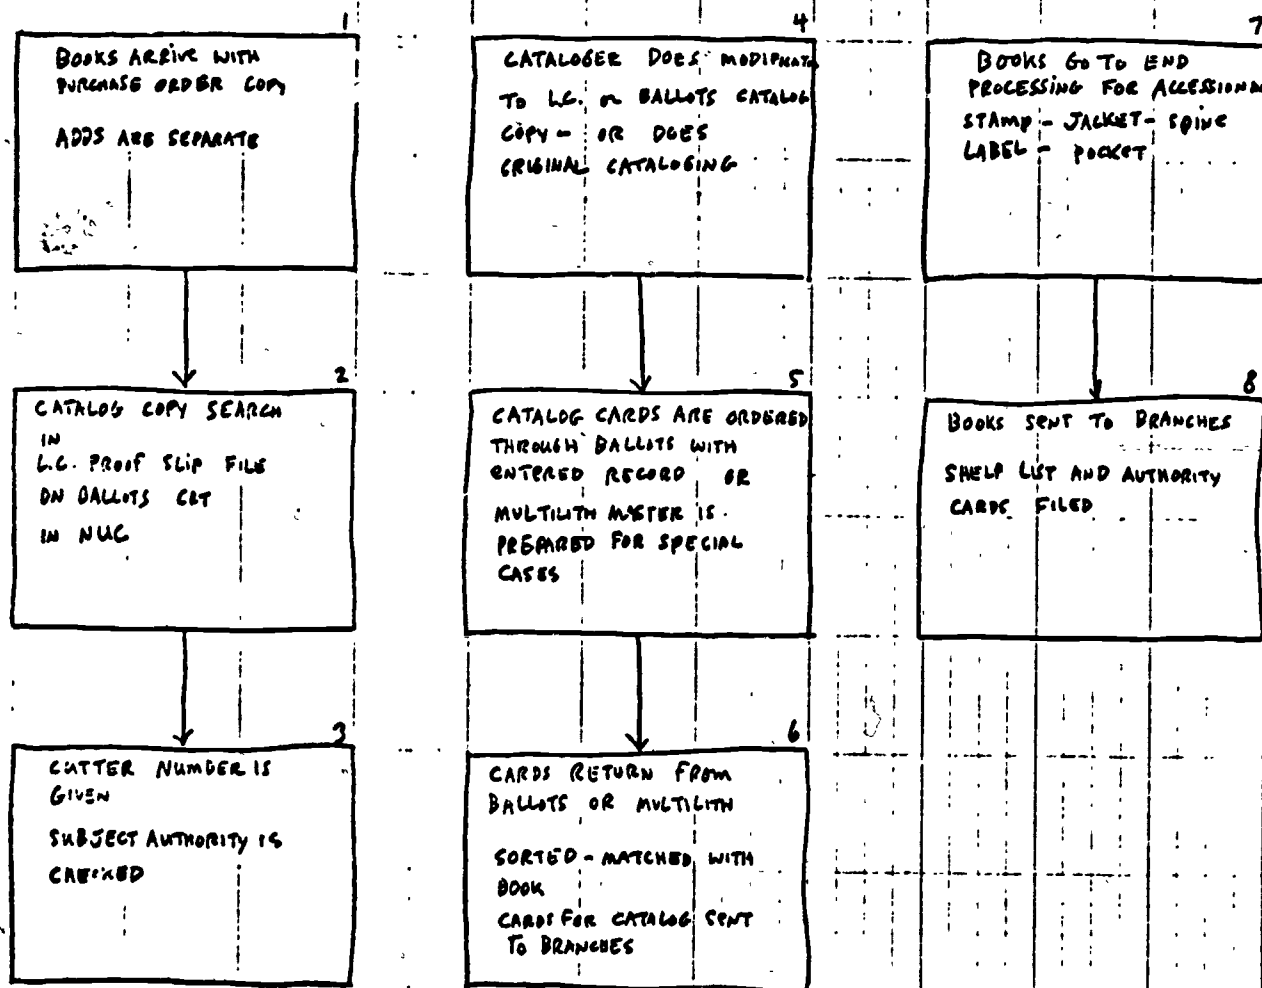 1
BOOKS ARRIVE WITH
PURCHASE ORDER COPY
ADDS ARE SEPARATE
2
CATALOG COPY SEARCH
IN
L.C. PROOF SLIP FILE
ON BALLOTS CRT
IN NUC
3
CUTTER NUMBER IS
GIVEN
SUBJECT AUTHORITY IS
CHECKED
4
CATALOGER DOES
TO L.C. OR BALLOTS CATALOG
COPY - OR DOES
ORIGINAL CATALOGING
5
CATALOG CARDS ARE ORDERED
THROUGH BALLOTS WITH
ENTERED RECORD OR
MULTILITH MASTER IS
PREPARED FOR SPECIAL
CASES
6
CARDS RETURN FROM
BALLOTS OR MULTILITH
SORTED - MATCHED WITH
BOOK
CARDS FOR CATALOG SENT
TO BRANCHES
7
BOOKS GO TO END
PROCESSING FOR
STAMP - JACKET - SPINE
LABEL - POCKET
8
BOOKS SENT TO BRANCHES
SHELF LIST AND AUTHORITY
CARDS FILED